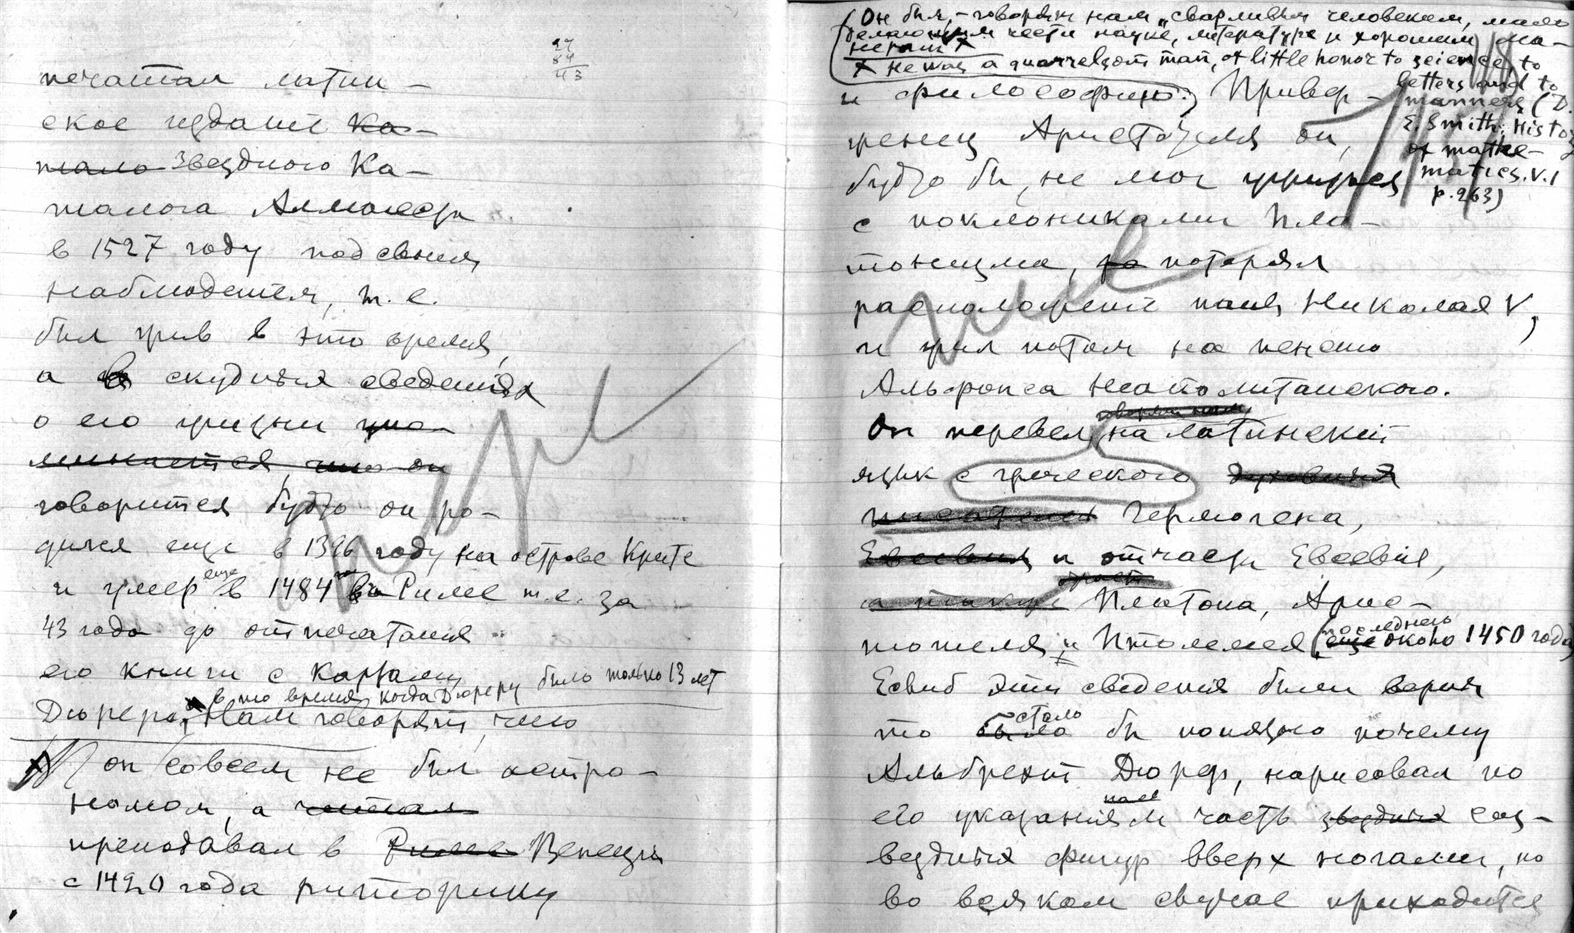 27
84
43
печатал латин-
ское издание Ка-
тало Звездного Ка-
талога Альмагеста
в 1527 году под своим
наблюдением, т. е.
был жив в это время,
а в скудных сведениях
о его жизни упо-
минается, что он
говорится будто он ро-
дился еще в 1396 году на острове Крите
и умер еще в 1484 в Риме т.е. за
43 года до отпечатания
его книги с картами
в то время, когда Дюреру было только 13 лет
Дюрера. Нам говорят, что
он совсем не был астро-
номом, а читал
преподавал в Риме Венеции
с 1420 года риторику
(Он был,- говорят нам, "сварливым человеком, мало
делающим чести науке, литературе и хорошим ма-
нерам" x
x He was a quarrelsom man, of little honor to science, to
letters and to
manners (D.
E. Smith: History
of mathe-
matics. V. 1
p. 263)
и философию.) Привер-
женец Аристотеля он,
будто бы, не мог ужиться
с поклониками Пла-
тонизма, потерял
расположение папы Николая V,
и жил потом на пенсию
Альфонса Неаполитанского.
говорят нам,
Он перевел на латинский
язык с греческого духовных
писателей Гермогена,
Евсевия и отчасти Евсевия,
а также Платона, Арис-
последнего
тотеля, и Птолемея (еще около 1450 года)
Если б эти сведения были верны
стало
то было бы понятно почему
Альбрехт Дюрер, нарисовал по
его указаниям часть звездных соз-
вездных фигур вверх ногами, но
во всяком случае приходится